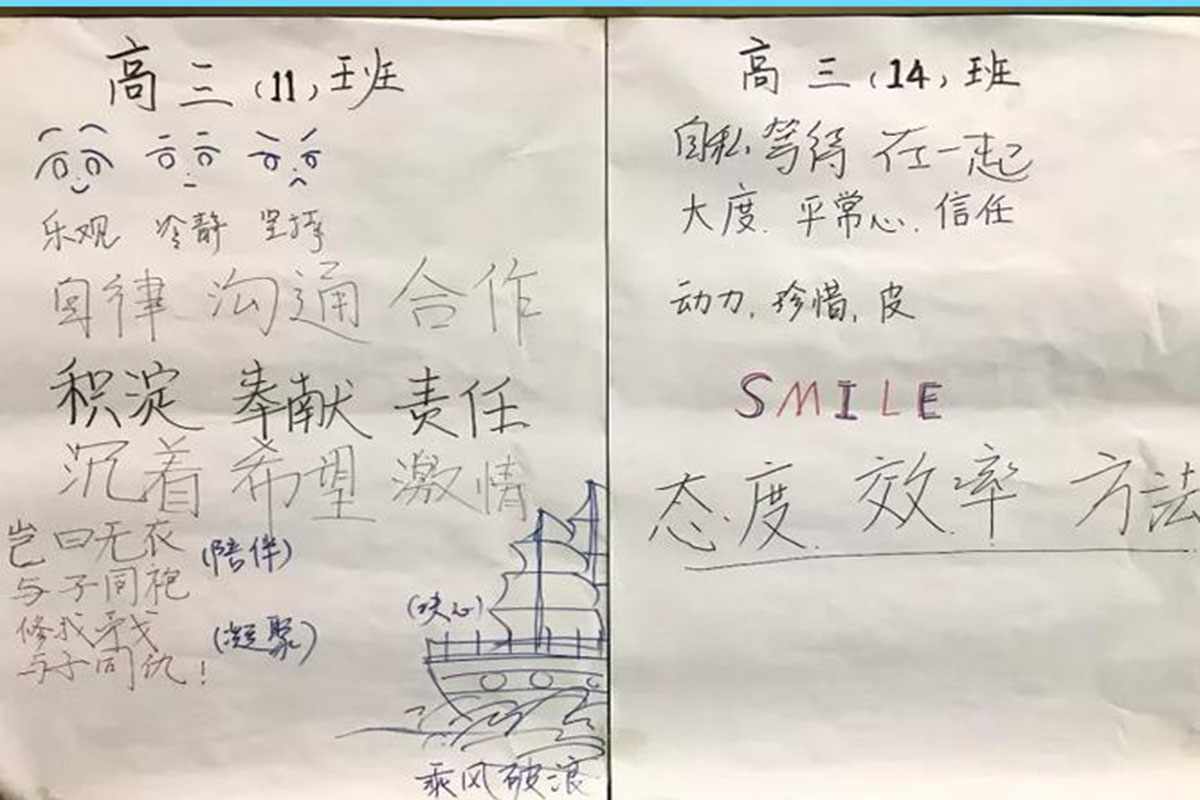 高三(11)班
乐观 冷静 坚持
自律 沟通 合作
积淀 奉献 责任
沉着 希望 激情
岂曰无衣
与子同袍
(陪伴)
修我矛戈
与子同仇!
(凝聚)
(决心)
乘风破浪
高三(14)班
自私,等待 在一起
大度. 平常心. 信任
动力, 珍惜, 皮
SMILE
态度. 效率 方法